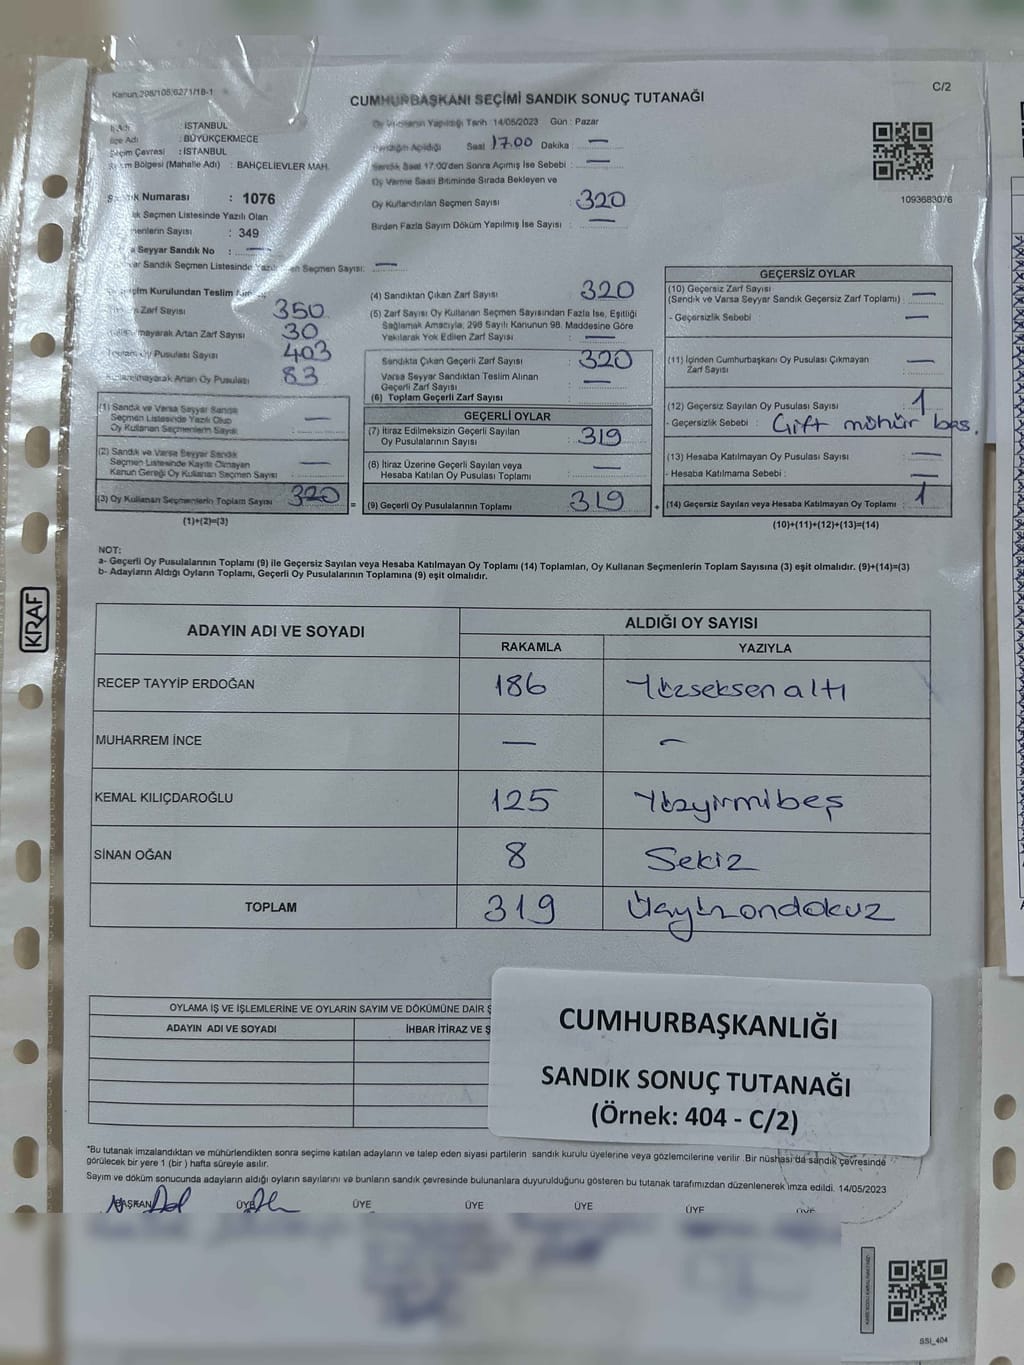 Kanun:298/106/6271/18-1
C/2
CUMHURBAŞKANI SEÇİMİ SANDIK SONUÇ TUTANAĞI
İl Adı : İSTANBUL
İlçe Adı : BÜYÜKÇEKMECE
Seçim Çevresi : İSTANBUL
Seçim Bölgesi (Mahalle Adı) : BAHÇELİEVLER MAH.
Sandık Numarası : 1076
Sandık Seçmen Listesinde Yazılı Olan
Seçmenlerin Sayısı : 349
Varsa Seyyar Sandık No : —
Seyyar Sandık Seçmen Listesinde Yazılı Olan Seçmen Sayısı: —
Oy Verilmenin Yapıldığı Tarih :14/05/2023 Gün : Pazar
Sandığın Açıldığı Saat 17.00 Dakika : —
Sandık Saat 17:00'den Sonra Açımış İse Sebebi : —
Oy Verme Saati Bitiminde Sırada Bekleyen ve
Oy Kullandırılan Seçmen Sayısı : 320
Birden Fazla Sayım Döküm Yapılmış İse Sayısı : —
1093683076
Seçim Kurulundan Teslim
Zarf Sayısı 350
Kullanılmayarak Artan Zarf Sayısı 30
Toplam Oy Pusulası Sayısı 403
Kullanılmayarak Artan Oy Pusulası 83
(1) Sandık ve Varsa Seyyar Sandık
Seçmen Listesinde Yazılı Olup
Oy Kullanan Seçmenlerin Sayısı : —
(2) Sandık ve Varsa Seyyar Sandık
Seçmen Listesinde Kayıtlı Olmayan
Kanun Gereği Oy Kullanan Seçmen Sayısı : —
(3) Oy Kullanan Seçmenlerin Toplam Sayısı : 320
(1)+(2)=(3)
(4) Sandıktan Çıkan Zarf Sayısı : 320
(5) Zarf Sayısı Oy Kullanan Seçmen Sayısından Fazla İse, Eşitliği
Sağlamak Amacıyla, 298 Sayılı Kanunun 98. Maddesine Göre
Yakılarak Yok Edilen Zarf Sayısı : —
Sandıkta Çıkan Geçerli Zarf Sayısı : 320
Varsa Seyyar Sandıktan Teslim Alınan
Geçerli Zarf Sayısı : —
(6) Toplam Geçerli Zarf Sayısı
GEÇERLİ OYLAR
(7) İtiraz Edilmeksizin Geçerli Sayılan
Oy Pusulalarının Sayısı : 319
(8) İtiraz Üzerine Geçerli Sayılan veya
Hesaba Katılan Oy Pusulası Toplamı : —
= (9) Geçerli Oy Pusulalarının Toplamı : 319 +
GEÇERSİZ OYLAR
(10) Geçersiz Zarf Sayısı
(Sandık ve Varsa Seyyar Sandık Geçersiz Zarf Toplamı) : —
- Geçersizlik Sebebi : —
(11) İçinden Cumhurbaşkanı Oy Pusulası Çıkmayan
Zarf Sayısı : —
(12) Geçersiz Sayılan Oy Pusulası Sayısı : 1
- Geçersizlik Sebebi : Çift mühür bas.
(13) Hesaba Katılmayan Oy Pusulası Sayısı : —
- Hesaba Katılmama Sebebi : —
(14) Geçersiz Sayılan veya Hesaba Katılmayan Oy Toplamı : 1
(10)+(11)+(12)+(13)=(14)
NOT:
a- Geçerli Oy Pusulalarının Toplamı (9) ile Geçersiz Sayılan veya Hesaba Katılmayan Oy Toplamı (14) Toplamları, Oy Kullanan Seçmenlerin Toplam Sayısına (3) eşit olmalıdır. (9)+(14)=(3)
b- Adayların Aldığı Oyların Toplamı, Geçerli Oy Pusulalarının Toplamına (9) eşit olmalıdır.
KRAF
ADAYIN ADI VE SOYADI
ALDIĞI OY SAYISI
RAKAMLA YAZIYLA
RECEP TAYYİP ERDOĞAN 186 Yüzseksen altı
MUHARREM İNCE — —
KEMAL KILIÇDAROĞLU 125 Yüzyirmibeş
SİNAN OĞAN 8 Sekiz
TOPLAM 319 Üçyüzondokuz
OYLAMA İŞ VE İŞLEMLERİNE VE OYLARIN SAYIM VE DÖKÜMÜNE DAİR
ADAYIN ADI VE SOYADI İHBAR İTİRAZ VE
CUMHURBAŞKANLIĞI
SANDIK SONUÇ TUTANAĞI
(Örnek: 404 - C/2)
*Bu tutanak imzalandıktan ve mühürlendikten sonra seçime katılan adayların ve talep eden siyasi partilerin sandık kurulu üyelerine veya gözlemcilerine verilir .Bir nüshası da sandık çevresinde
görülecek bir yere 1 (bir ) hafta süreyle asılır.
Sayım ve döküm sonucunda adayların aldığı oyların sayılarını ve bunların sandık çevresinde bulunanlara duyurulduğunu gösteren bu tutanak tarafımızdan düzenlenerek imza edildi. 14/05/2023
BAŞKAN ÜYE ÜYE ÜYE ÜYE ÜYE ÜYE
SSİ_404